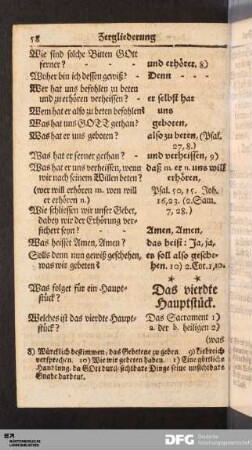 58 Zergliederung
Wie sind solche Bitten GOtt
ferner? - - - und erhöret. 8)
Woher bin ich dessen gewiß? - Denn - - -
Wer hat uns befohlen zu beten
und zu erhören verheissen? - er selbst hat
Wem hat er also zu beten befohlen? uns
Was hat uns GOTT gethan? geboten,
Was hat er uns geboten? also zu beten, (Psal.
27, 8.)
Was hat er ferner gethan? - und verheissen, 9)
Was hat er uns verheissen, wenn daß er uns will
wir nach seinem Willen beten? erhören,
(wer will erhören wen will Psal. 50, 15. Joh.
er erhören 16,23. (2. Sam.
Wie schliessen wir unser Gebet, 7, 28.)
daby wir der Erhörung ver-
sichert seyn? - Amen, Amen,
Was heisset Amen, Amen? das heist: Ja, ja,
Solls denn nun gewiß geschehen, es soll also gesche-
was wir gebeten? hen. 10)
Was folget für ein Haupt- Das vierdte
stück? Hauptstück.
Welches ist das vierdte Haupt- Das Sacrament 1)
stück? der heiligen 2)
(was
8) Würcklich bestimmen, das Gebetene zu geben. 9)
versprechen. 10) Wie wir gebeten haben. 1) Eine göttliche
Handlung, da GOtt durch sichtbare Dinge seine unsichtbare
Gnade darbeut.
DFG Deutsche
Forschungsgemeinschaft